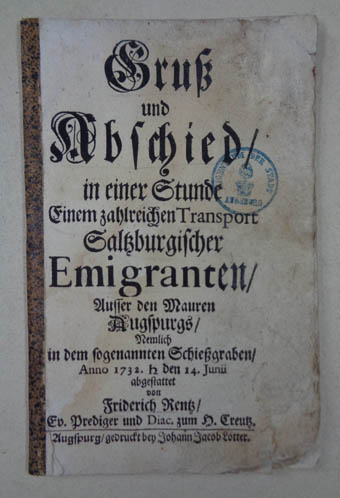 Gruß
und
Abschied/
in einer Stunde
Einem zahlreichen Transport
Saltzburgischer
Emigranten/
Ausser den Mauren
Augspurgs/
Nemlich
in dem sogenannten Schießgraben/
Anno 1732. ♄ den 14. Junii
abgestattet
von
Friderich Rentz/
Ev. Prediger und Diac. zum H. Creutz.
Augspurg/ gedruckt bey Johann Jacob Lotter.
DER STADT
AUGSBURG